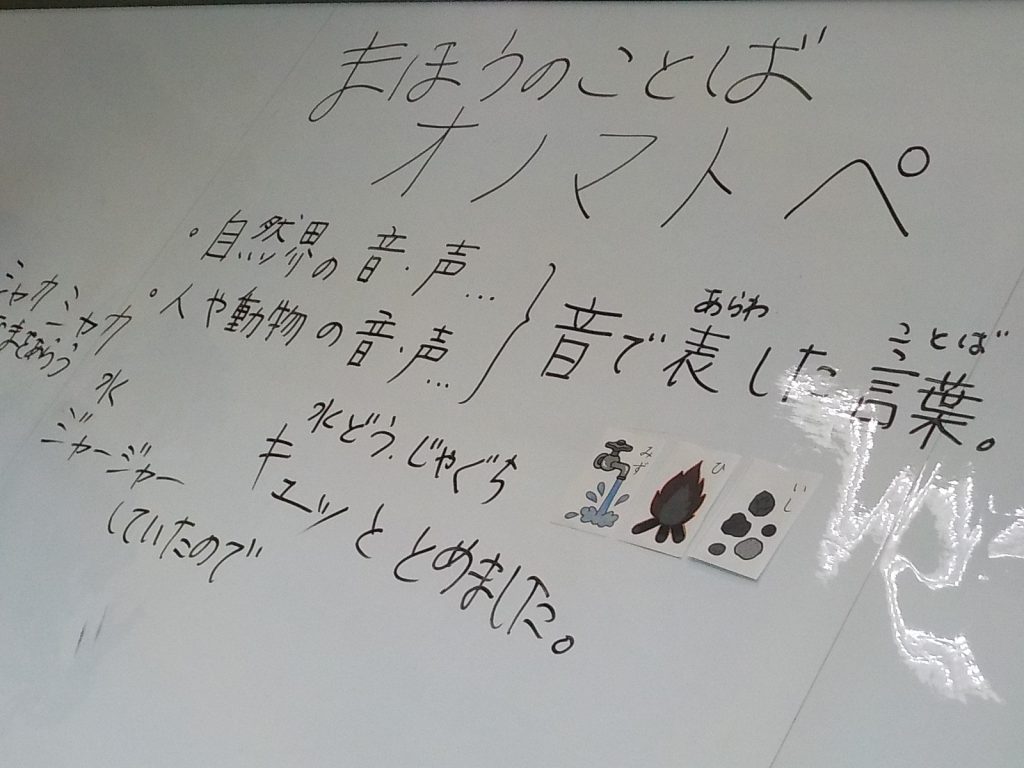 まほうのことば
オノマトペ
・自然界の音・声…
・人や動物の音・声…
音で表した言葉。
あらわ
ことば
シャカシャカ
水
ジャージャー
していたので
水どう.じゃぐち
キュッととめました。
みず
ひ
いし